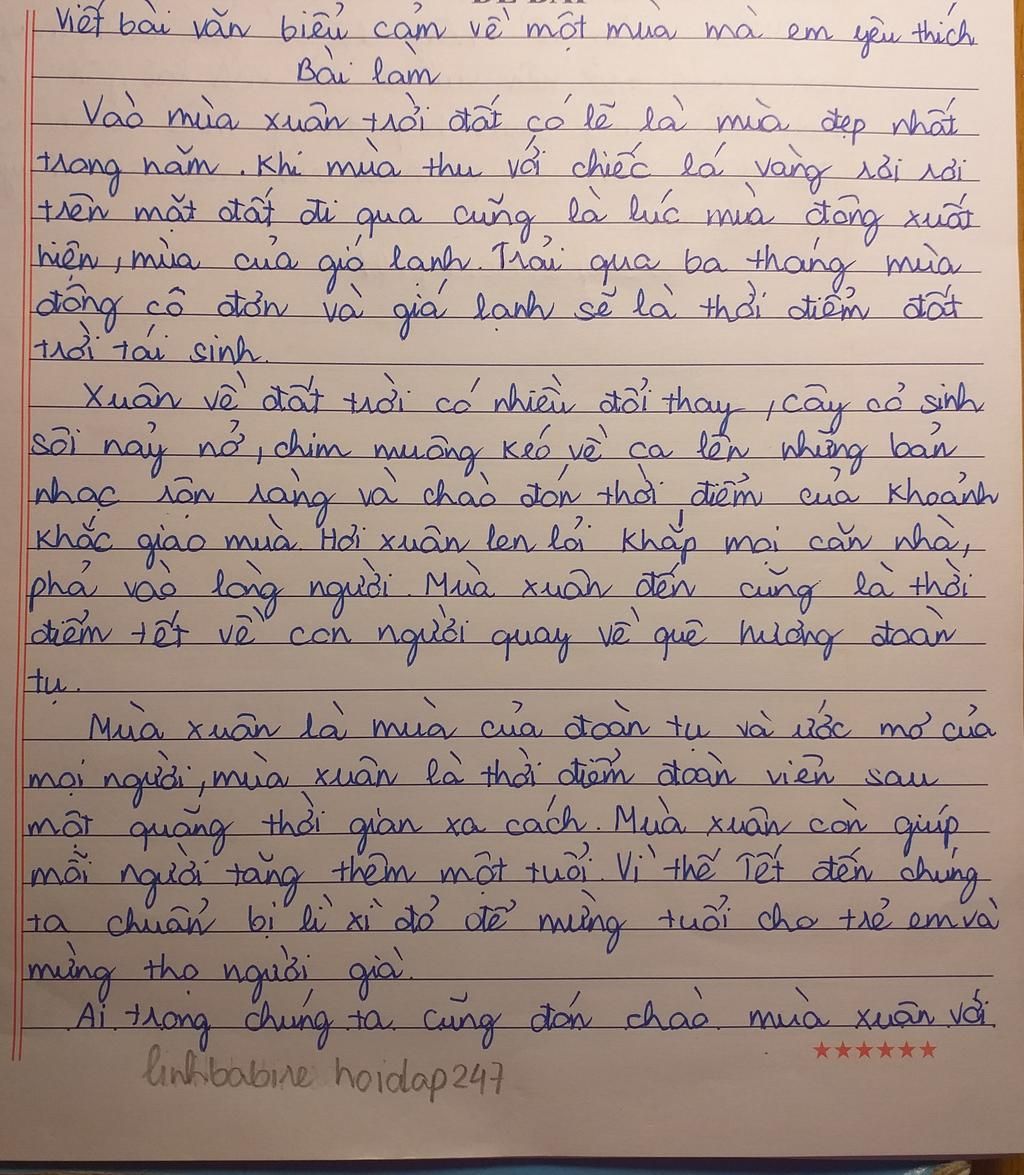 Viết bài văn biểu cảm về một mùa mà em yêu thích
Bài làm
Vào mùa xuân trời đất có lẽ là mùa đẹp nhất
trong năm. Khi mùa thu với chiếc lá vàng rơi rơi
trên mặt đất đi qua cũng là lúc mùa đông xuất
hiện, mùa của gió lạnh. Trải qua ba tháng mùa
đông cô đơn và giá lạnh sẽ là thời điểm đất
trời tái sinh.
Xuân về đất trời có nhiều đổi thay, cây cỏ sinh
sôi nảy nở, chim muông kéo về ca lên những bản
nhạc rộn ràng và chào đón thời điểm của khoảnh
khắc giao mùa. Hơi xuân len lỏi khắp mọi căn nhà,
phả vào lòng người. Mùa xuân đến cũng là thời
điểm tết về con người quay về quê hương đoàn
tụ.
Mùa xuân là mùa của đoàn tụ và ước mơ của
mọi người, mùa xuân là thời điểm đoàn viên sau
một quãng thời gian xa cách. Mùa xuân còn giúp
mỗi người tăng thêm một tuổi. Vì thế Tết đến chúng
ta chuẩn bị lì xì đỏ để mừng tuổi cho trẻ em và
mừng thọ người già.
Ai trong chúng ta cũng đón chào mùa xuân với
linhbabine hoidap247